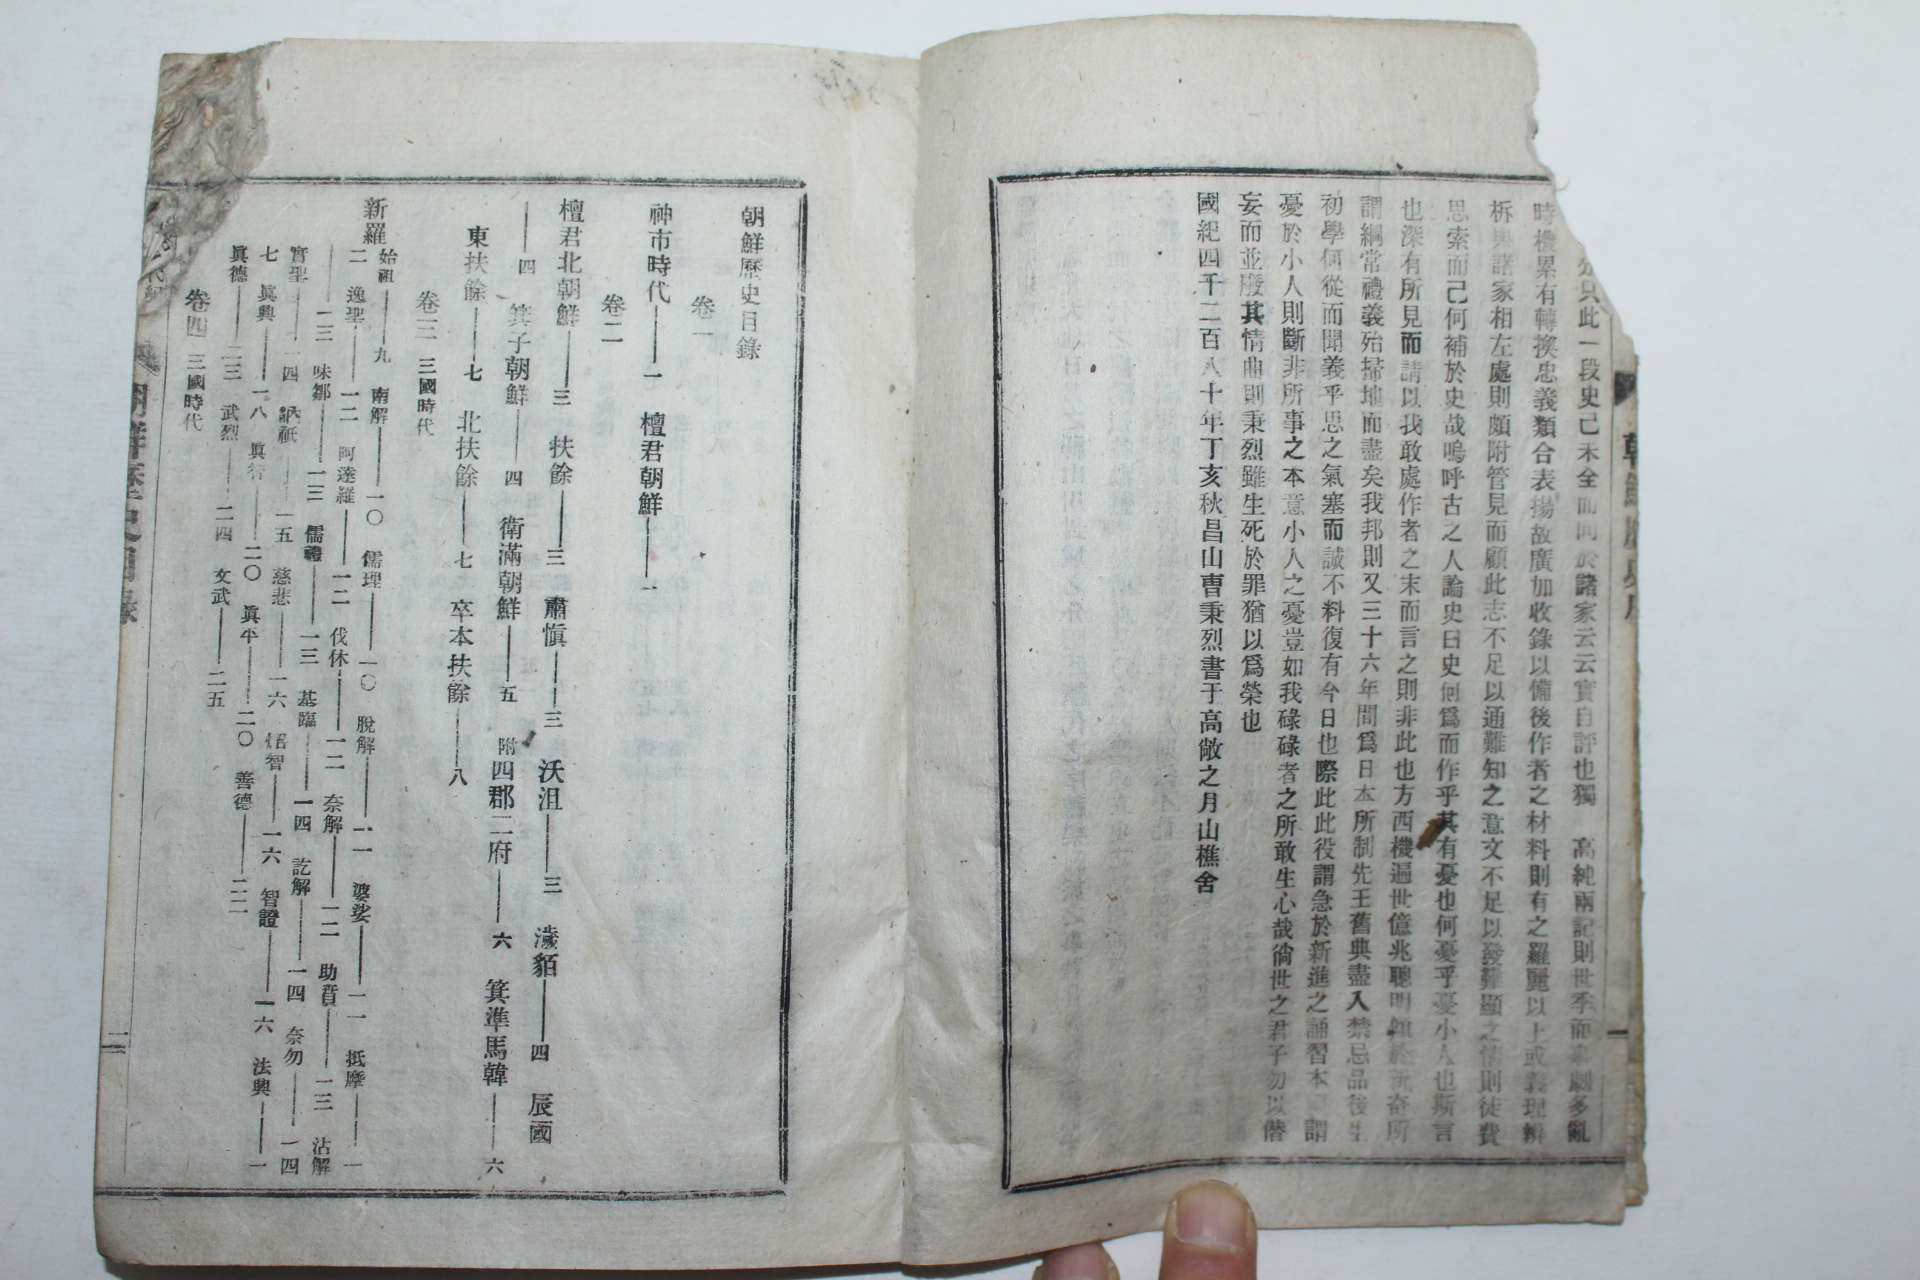 分只此一段史己未全而間於諸家云云實自評也獨 高純兩記則世季而 劇多亂
時機累有轉換忠義類合表揚故廣加收錄以備後作者之材料則有之羅麗以上或義理辨
析與諸家相左處則頗附管見而顧此志不足以通難知之意文不足以發難顯之情則徒費
思索而己何補於史哉嗚呼古之人論史曰史何爲而作乎其有憂也何憂乎憂小人也斯言
也深有所見而請以我敢處作者之末而言之則非此也方西機遍世億兆聰明傾於新奇所
謂綱常禮義殆掃地而盡矣我邦則又三十六年間爲日本所制先王舊典盡入禁忌品後生
初學何從而聞義乎思之氣塞而誠不料復有今日也際此此役謂急於新進之誦習本 謂
憂於小人則斷非所事之本意小人之憂豈如我碌碌者之所敢生心哉徜世之君子勿以僭
妄而並廢其情曲則秉烈雖生死於罪猶以爲榮也
國紀四千二百八十年丁亥秋昌山曺秉烈書于高敞之月山樵舍
朝鮮歷史目錄
卷一
神市時代——一 檀君朝鮮——一
卷二
檀君北朝鮮——三 扶餘——三 肅愼——三 沃沮——三 濊貊——四 辰國
——四 箕子朝鮮——四 衛滿朝鮮——五 附四郡二府——六 箕準馬韓——六
東扶餘——七 北扶餘——七 卒本扶餘——八
卷三 三國時代
新羅 始祖——九 南解——一〇 儒理——一〇 脫解——一一 婆娑——一一 抵摩——一
二 逸聖——一二 阿達羅——一二 伐休——一二 奈解——一二 助賁——一三 沾解
——一三 味鄒——一三 儒禮——一三 基臨——一四 訖解——一四 奈勿——一四
實聖——一四 訥祇——一五 慈悲——一六 炤智——一六 智證——一六 法興——一
七 眞興——一八 眞智——二〇 眞平——二〇 善德——二二
眞德——二三 武烈——二四 文武——二五
卷四 三國時代
朝鮮歷史目錄
一
朝鮮歷史序
二